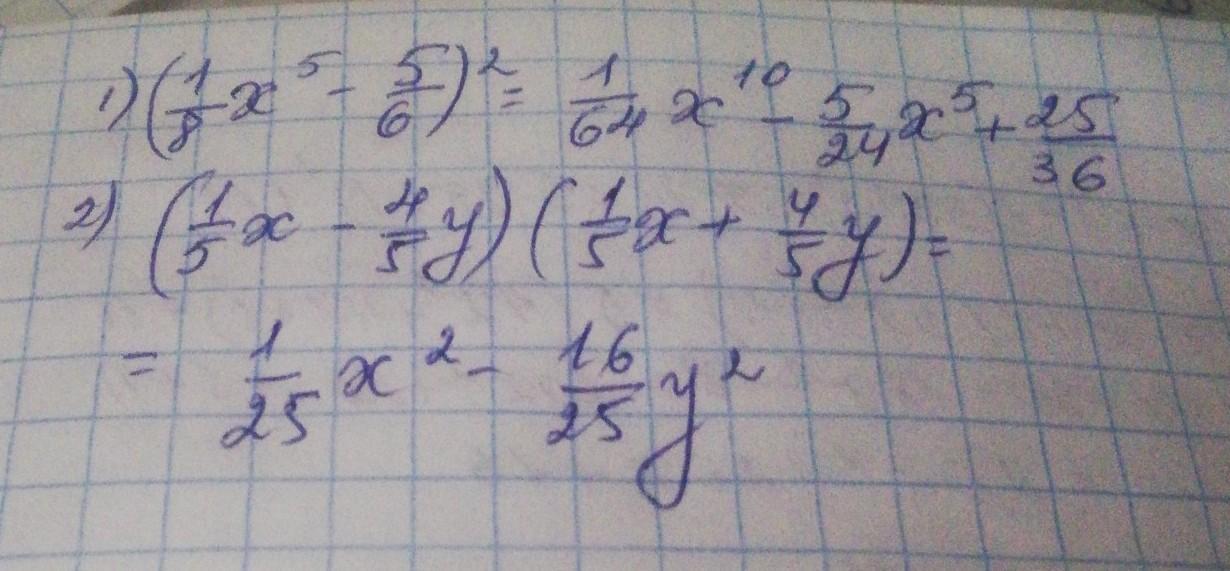 1) (1/8 x^5 - 5/6)^2 = 1/64 x^10 - 5/24 x^5 + 25/36
2) (1/5 x - 4/5 y) (1/5 x + 4/5 y) =
= 1/25 x^2 - 16/25 y^2